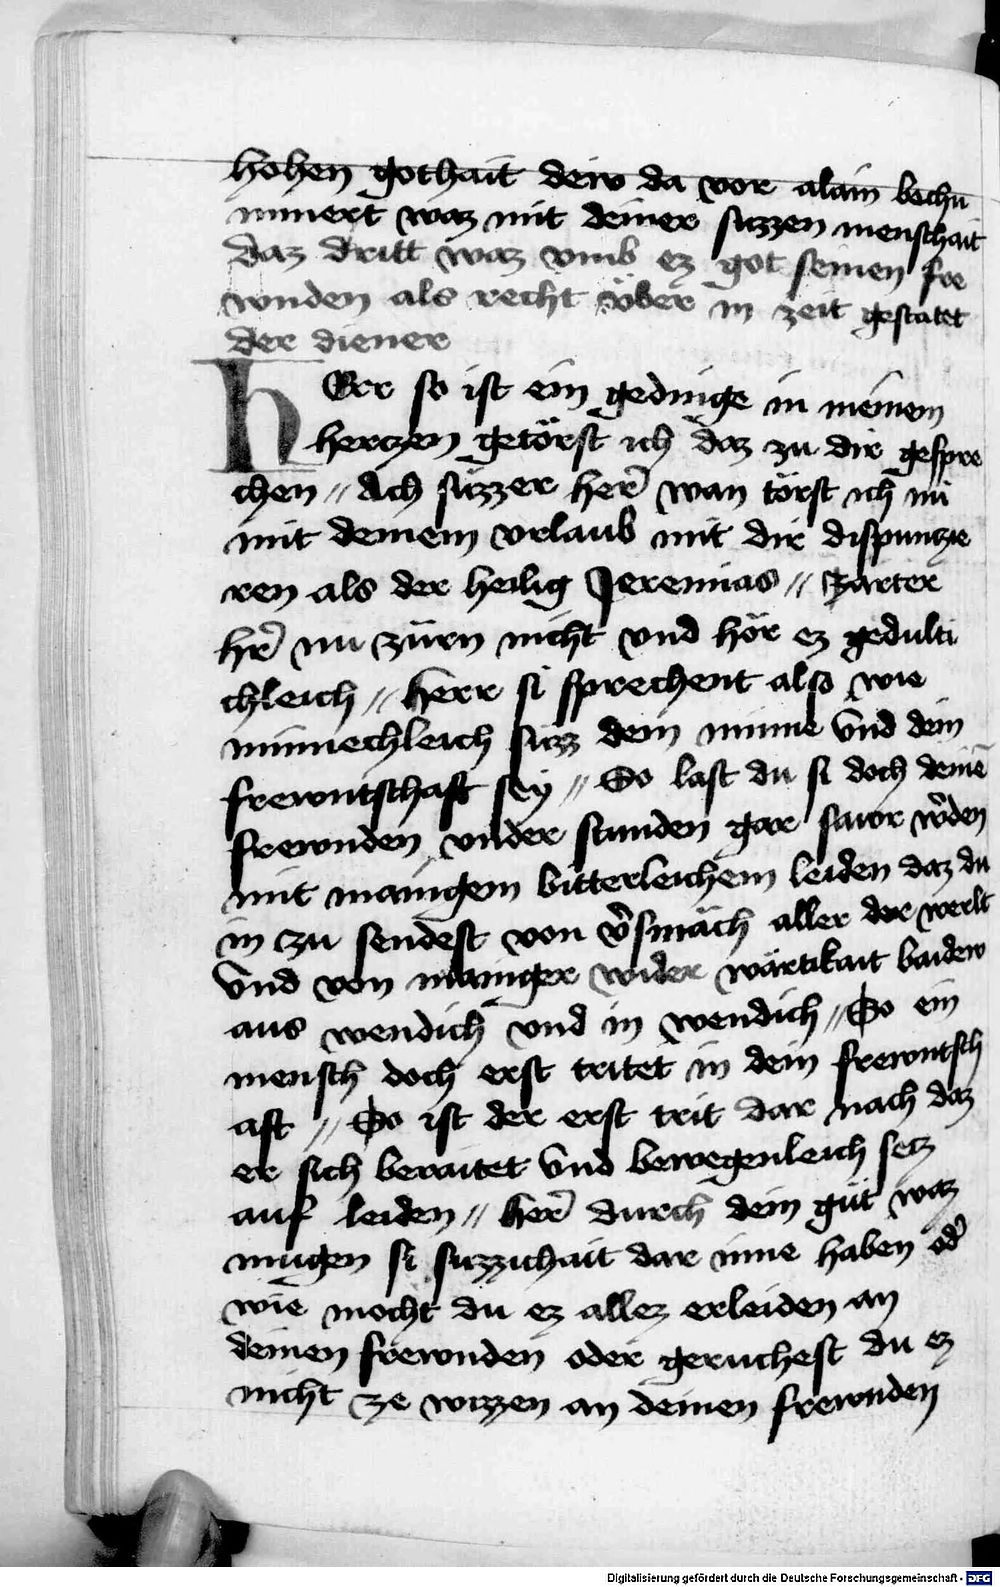 hohen gothait dew da vor alain bechu
mmert waz mit deiner suzzen menschait
daz dritt waz vmb ez got seinen fre
wnden als recht vͤber in zeit gestatet
der diener
HErr so ist ein gedinge in meinem
herczen getörst ich daz zu dir gespre
chen // Ach süzzer her̃ wan törst ich nu
mit deinem vrlaub mit dir dispuntzie
ren als der heilig Jeremias // zarter
hr̃ nu zürn nicht vnd hör ez gedulti
chleich // herr si sprechent also wie
minnechleich suzz dein minne vnd dein
frewntschaft sey // So last du si doch deinē
frewnden vnder stunden gar sawr w̃den
mit manigem bitterleichem leiden daz du
in zu sendest von ṽsmäch aller der werlt
vnd von maniger wider wärtikait baidew
aus wendich vnd in wendich // So ein
mensch doch erst tritet in dein frewntsch
aft // So ist der erst trit dar nach daz
er sich beraitet vnd bewegenleich setz
auf leiden // her̃ durch dein güt waz
mugen si suzzichait dar inne haben od̃
wie mocht du ez allez erleiden an
deinen frewnden oder geruchest du ez
nicht ze wizzen an deinen frewnden
Digitalisierung gefördert durch die Deutsche Forschungsgemeinschaft - DFG